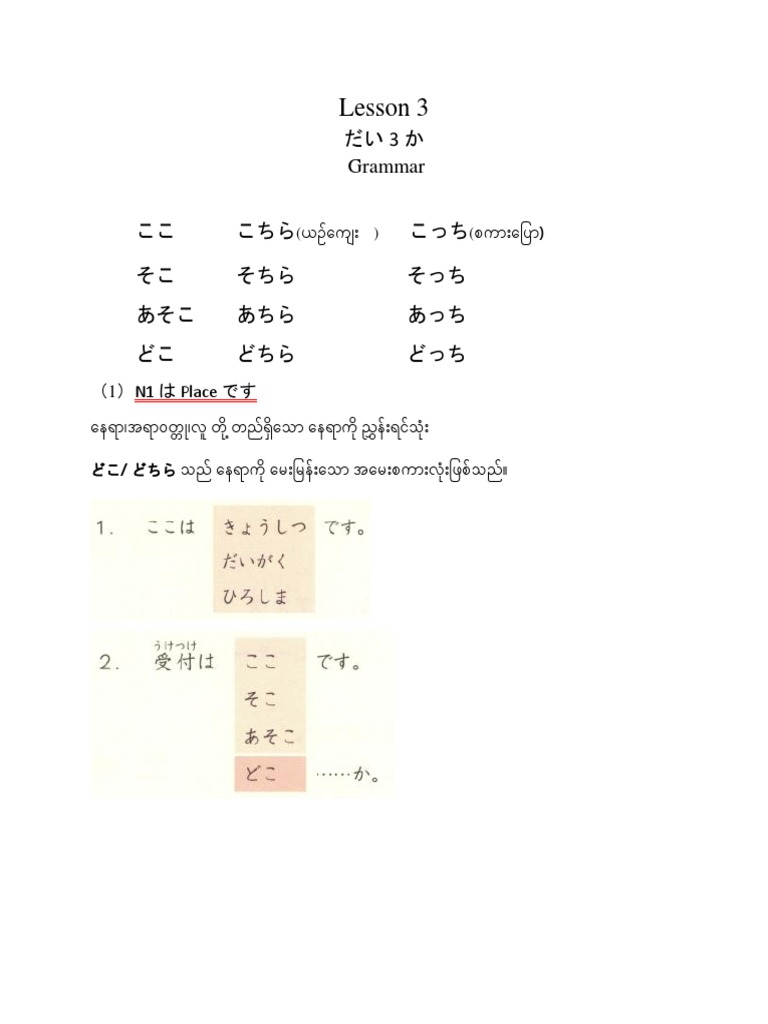 Lesson 3
だい 3 か
Grammar
ここ こちら(ယဉ်ကျေး ) こっち(စကားပြော)
そこ そちら そっち
あそこ あちら あっち
どこ どちら どっち
（1）N1 は Place です
နေရာ၊အရာဝတ္တု၊လူ တို့ တည်ရှိသော နေရာကို ညွှန်းရင်သုံး
どこ/ どちら သည် နေရာကို မေးမြန်းသော အမေးစကားလုံးဖြစ်သည်။
1. ここは きょうしつ です。
だいがく
ひろしま
うけつけ
2. 受付は ここ です。
そこ
あそこ
どこ ……か。